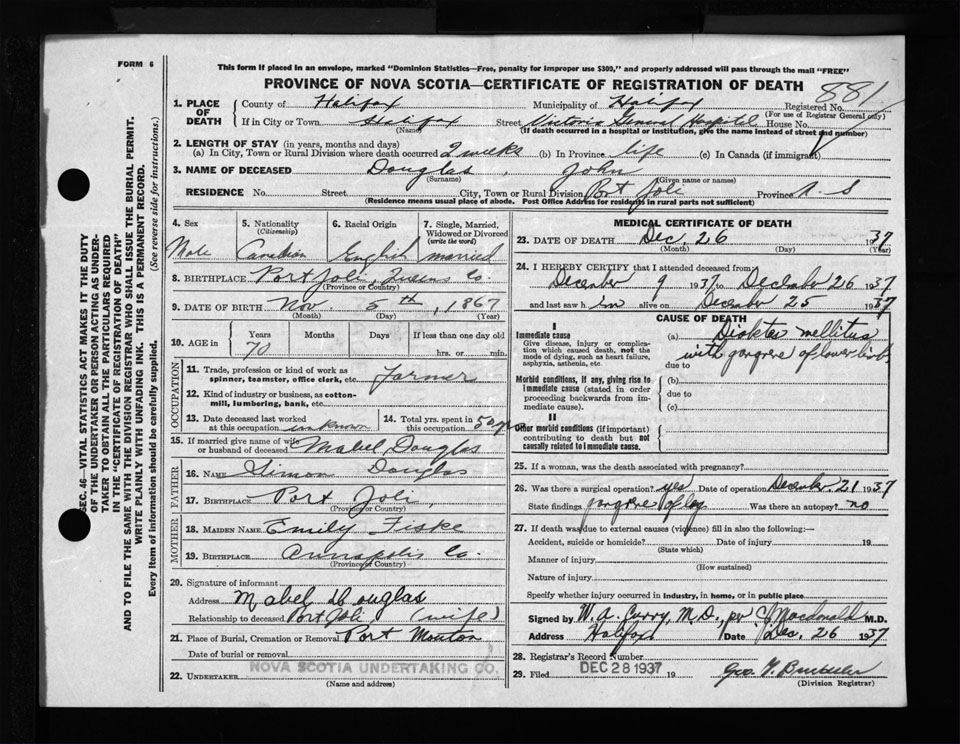 FORM 6
This form if placed in an envelope, marked "Dominion Statistics—Free, penalty for improper use $300," and properly addressed will pass through the mail "FREE"
PROVINCE OF NOVA SCOTIA—CERTIFICATE OF REGISTRATION OF DEATH
881
1. PLACE OF DEATH
County of Halifax Municipality of Halifax Registered No.
(For use of Registrar General only)
If in City or Town Halifax Street Victoria General Hospital House No.
(Name) (If death occurred in a hospital or institution, give the name instead of street and number)
2. LENGTH OF STAY (in years, months and days)
(a) In City, Town or Rural Division where death occurred 2 weeks (b) In Province life (c) In Canada (if immigrant)
3. NAME OF DECEASED Douglas, John
(Surname) (Given name or names)
RESIDENCE No. Street City, Town or Rural Division Port Joli Province N-S
(Residence means usual place of abode. Post Office Address for residents in rural parts not sufficient)
4. Sex 5. Nationality (Citizenship) 6. Racial Origin 7. Single, Married, Widowed or Divorced (write the word)
Male Canadian English married
8. BIRTHPLACE Port Joli, Queens Co.
(Province or Country)
9. DATE OF BIRTH Nov. 5th, 1867
(Month) (Day) (Year)
10. AGE in Years Months Days If less than one day old
70 hrs. or min.
OCCUPATION
11. Trade, profession or kind of work as spinner, teamster, office clerk, etc. Farmer
12. Kind of industry or business, as cotton-mill, lumbering, bank, etc.
13. Date deceased last worked at this occupation unknown 14. Total yrs. spent in this occupation 50 yrs
15. If married give name of wife or husband of deceased Mabel Douglas
FATHER
16. Name Simon Douglas
17. Birthplace Port Joli,
(Province or Country)
MOTHER
18. Maiden Name Emily Fiske
19. Birthplace Annapolis Co.
(Province or Country)
20. Signature of informant
Address Mabel Douglas
Relationship to deceased Port Joli (wife)
21. Place of Burial, Cremation or Removal Port Mouton
Date of burial or removal
NOVA SCOTIA UNDERTAKING CO.
22. UNDERTAKER
(Name and address)
MEDICAL CERTIFICATE OF DEATH
23. DATE OF DEATH Dec. 26 1937
(Month) (Day)
24. I HEREBY CERTIFY that I attended deceased from
December 9 1937 to December 26 1937
and last saw him alive on December 25 1937
CAUSE OF DEATH
I
Immediate cause
Give disease, injury or complication which caused death, not the mode of dying, such as heart failure, asphyxia, asthenia, etc.
(a) Diabetes mellitus
with gangrene of lower limb
due to
Morbid conditions, if any, giving rise to immediate cause (stated in order proceeding backwards from immediate cause).
(b)
due to
(c)
II
Other morbid conditions (if important) contributing to death but not causally related to immediate cause.
25. If a woman, was the death associated with pregnancy?
26. Was there a surgical operation? yes Date of operation December 21 1937
State findings gangrene of leg Was there an autopsy? no
27. If death was due to external causes (violence) fill in also the following:—
Accident, suicide or homicide? Date of injury 19
(State which)
Manner of injury
(How sustained)
Nature of injury
Specify whether injury occurred in industry, in home, or in public place
Signed by W. A. Curry, M.D., per M.D.
Address Halifax Date Dec. 26 1937
28. Registrar's Record Number
DEC 28 1937
29. Filed 19 Geo.
(Division Registrar)
SEC. 46—VITAL STATISTICS ACT MAKES IT THE DUTY
OF THE UNDERTAKER OR PERSON ACTING AS UNDER-
TAKER TO OBTAIN ALL THE PARTICULARS REQUIRED
IN THE "CERTIFICATE OF REGISTRATION OF DEATH"
AND TO FILE THE SAME WITH THE DIVISION REGISTRAR WHO SHALL ISSUE THE BURIAL PERMIT.
WRITE PLAINLY WITH UNFADING INK. THIS IS A PERMANENT RECORD.
Every item of information should be carefully supplied. (See reverse side for instructions.)